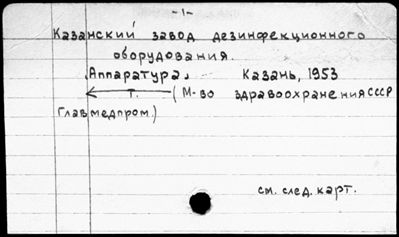 -1-
Казанский завод дезинфекционного
оборудования.
Аппаратура. Казань, 1953
т. (М-во здравоохранения СССР
Главмедпром.)
см. след. карт.